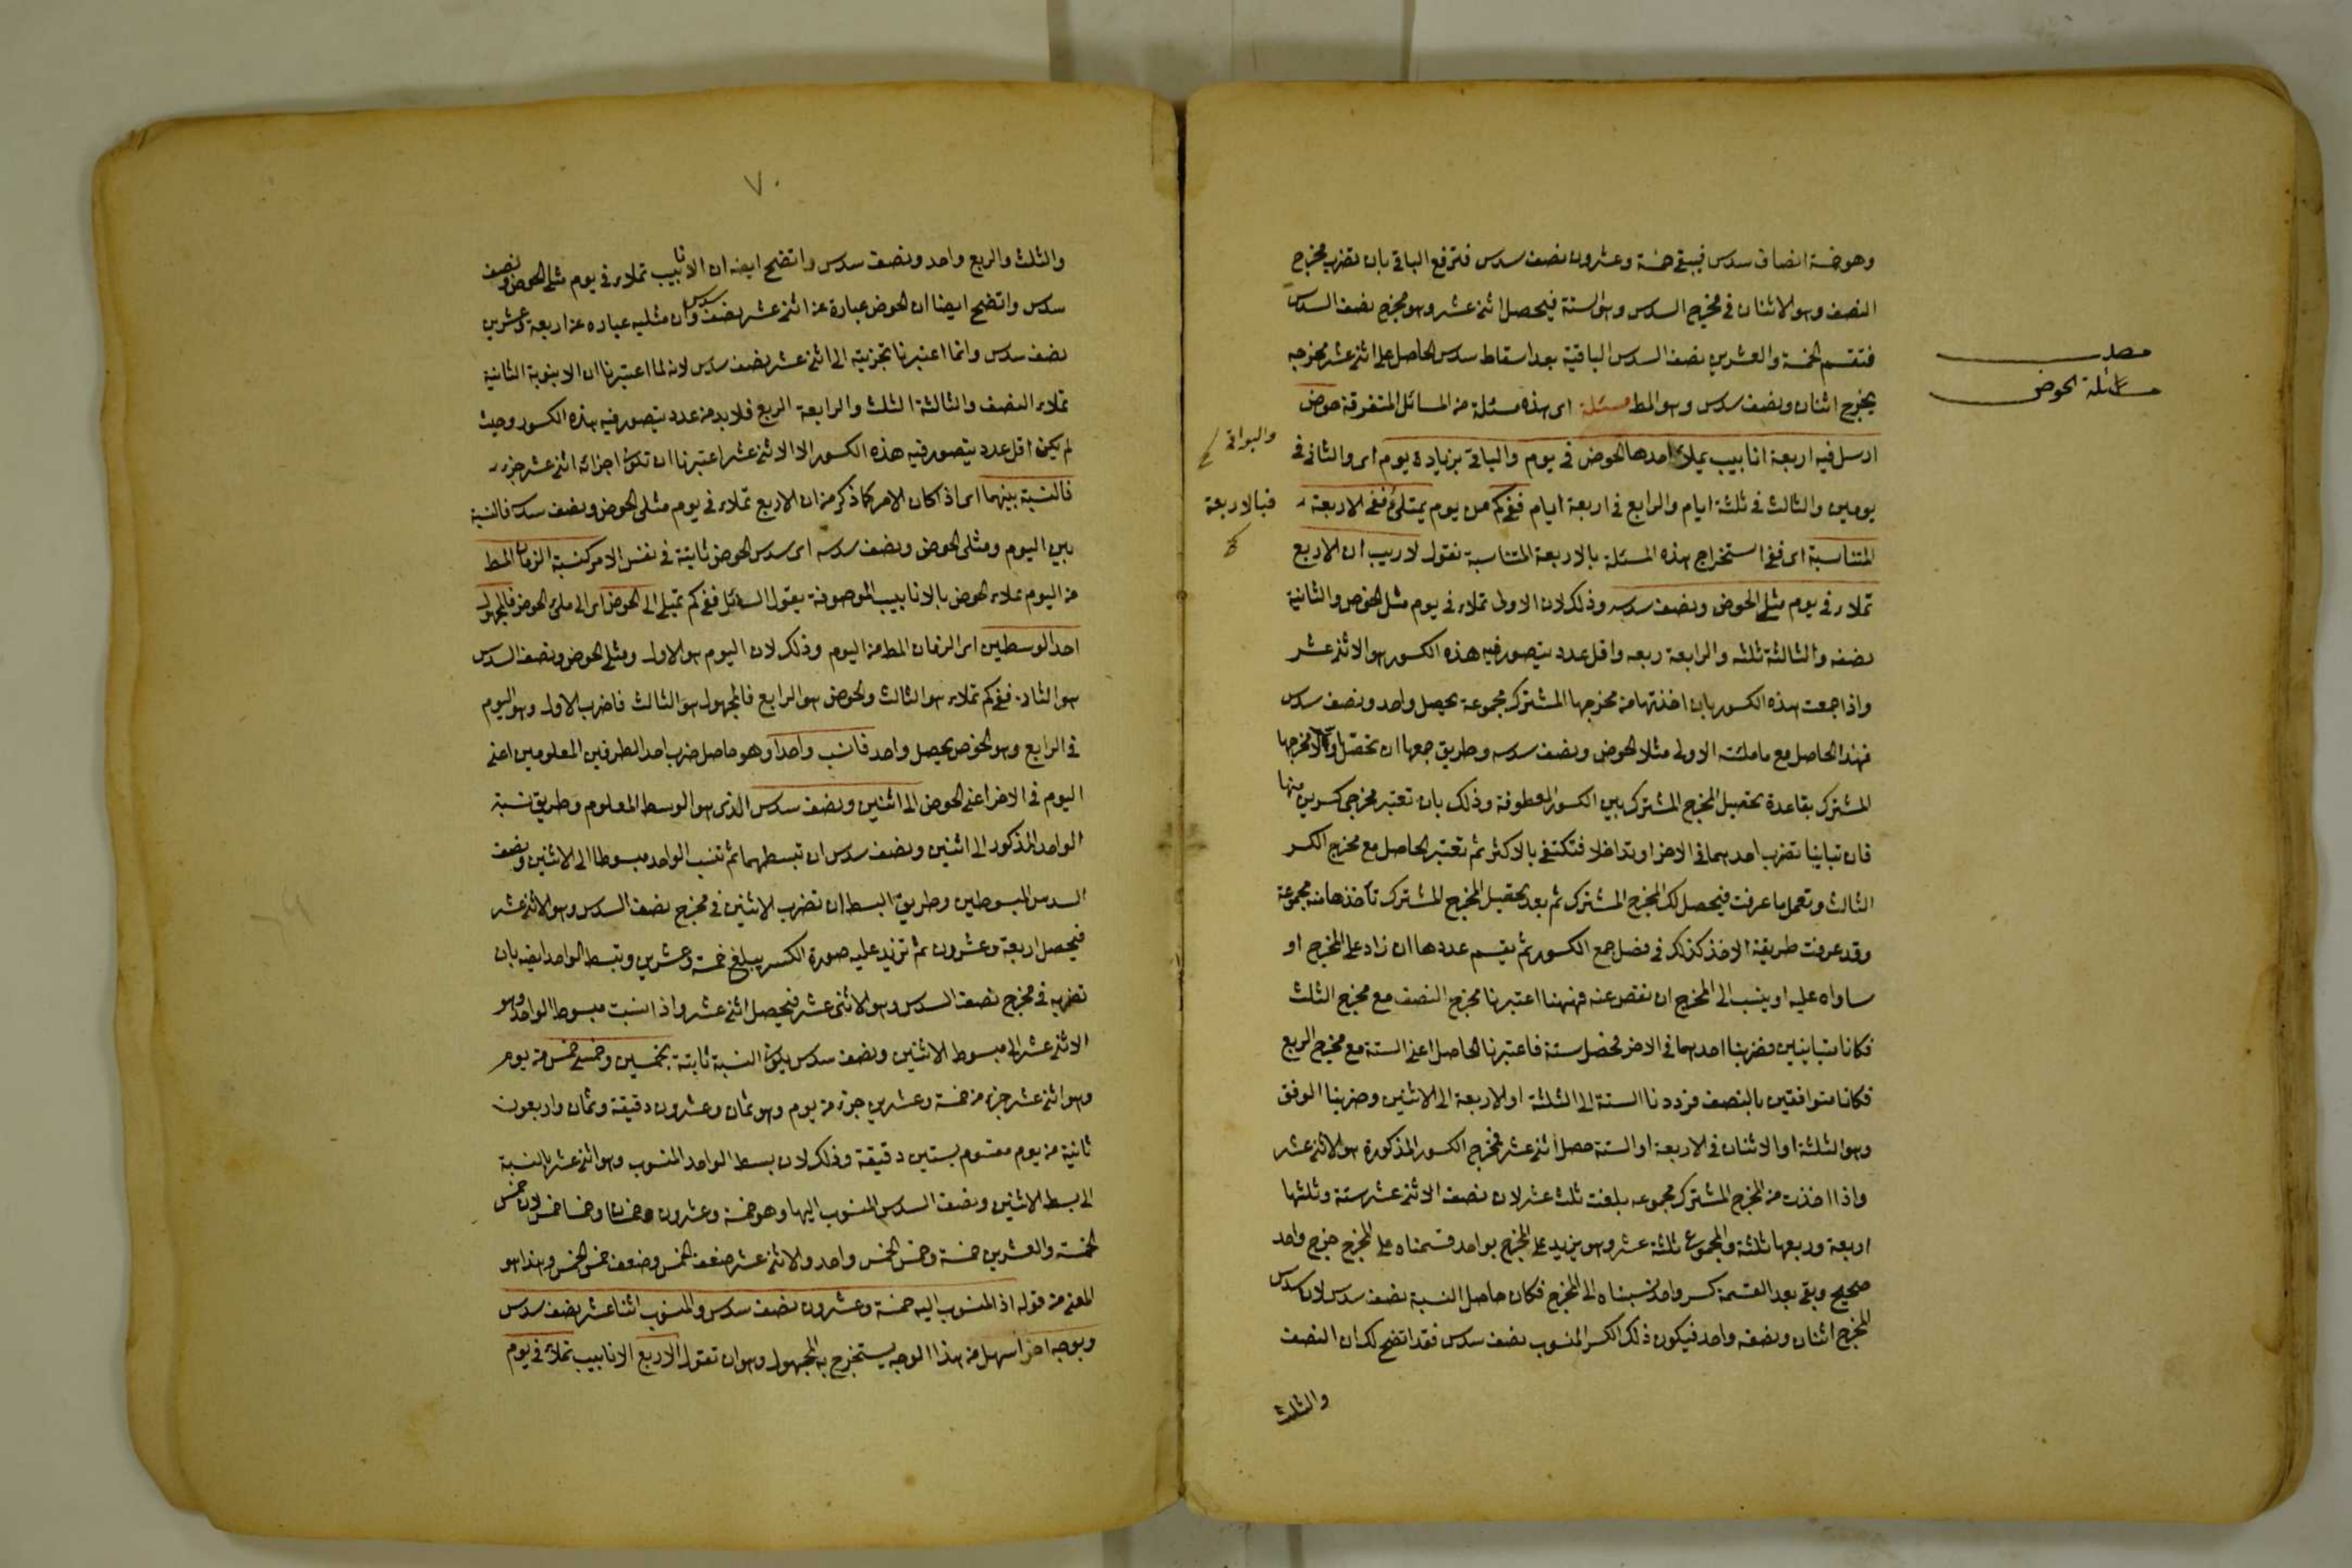 وهو خمسة انصاف سدس فيبقى خمسة وعشرون نصف سدس فترفع الباقي بان تضرب مخرج
النصف وهو الاثنان في مخرج السدس وهو الستة فيحصل اثنى عشر وهو مخرج نصف السدس
فتقسم الخمسة والعشرين نصف السدس الباقية بعد اسقاط سدس الحاصل على اثنى عشر مخرجه
يخرج اثنان ونصف سدس وهو المط مسئلة اى هذه مسئلة من المسائل المتفرقة حوض
ارسل فيه اربعة انابيب يملاء احدها الحوض في يوم والباقي بزيادة يوم اى والثاني في
يومين والثالث في ثلثة ايام والرابع في اربعة ايام ففي كم من يوم يمتلئ ففى الاربعة
المتناسبة اى ففي استخراج هذه المسئلة بالاربعة المتناسبة نقول لا ريب ان الاربع
تملاء في يوم مثلى الحوض ونصف سدسه وذلك لان الاولى تملاء في يوم مثل الحوض والثانية
نصفه والثالثة ثلثه والرابعة ربعه واقل عدد يتصور فيه هذه الكسور هو الاثنى عشر
واذا جمعت هذه الكسور بان اخذتها من مخرجها المشترك مجموعة يحصل واحد ونصف سدس
فهذا الحاصل مع ما ملئته الاولى مثلا الحوض ونصف سدسه وطريق جمعها ان تحصل اولا مخرجها
المشترك بقاعدة تحصيل المخرج المشترك بين الكسور المعطوفة وذلك بان تعتبر مخرجى كسرين منها
فان تباينا تضرب احدهما في الاخر او تداخلا فتكتفي بالاكثر ثم تعتبر الحاصل مع مخرج الكسر
الثالث وتعمل ما عرفت فيحصل لك المخرج المشترك ثم بعد تحصيل المخرج المشترك تأخذها منه مجموعة
وقد عرفت طريقة الاخذ كذلك في فصل جمع الكسور ثم يقسم عددها ان زاد على المخرج او
ساواه عليه او ينسب الى المخرج ان نقص عنه فههنا اعتبرنا مخرج النصف مع مخرج الثلث
فكانا متباينين فضربنا احدهما في الاخر فحصل ستة فاعتبرنا الحاصل اعنى الستة مع مخرج الربع
فكانا متوافقين بالنصف فرددنا الستة الى الثلثة او الاربعة الى الاثنين وضربنا الوفق
وهو الثلثة او الاثنان في الاربعة او الستة حصل اثنى عشر فمخرج الكسور المذكورة هو الاثنى عشر
واذا اخذت من المخرج المشترك مجموعه بلغت ثلث عشر لان نصف الاثنى عشر ستة وثلثها
اربعة وربعها ثلثة والمجموع ثلثة عشر وهو يزيد على المخرج بواحد قسمناه على المخرج خرج واحد
صحيح وبقى بعد القسمة كسر واحد نسبناه الى المخرج فكان حاصل النسبة نصف سدس لان سدس
المخرج اثنان ونصفه واحد فيكون ذلك الكسر المنسوب نصف سدس فقد اتضح لك ان النصف
والثلث
مسئلة الحوض
والبواقى
فبالاربعة
٧٠
والثلث والربع واحد ونصف سدس واتضح ايضا ان الانابيب تملاء في يوم مثلى الحوض ونصف
سدس واتضح ايضا ان الحوض عبارة عن اثنى عشر نصف سدس وان مثليه عبارة عن اربعة وعشرين
نصف سدس وانما اعتبرنا تجزيته الى اثنى عشر نصف سدس لانه لما اعتبرنا ان الانبوبة الثانية
تملاء النصف والثالثة الثلث والرابعة الربع فلا بد من عدد يتصور فيه هذه الكسور وحيث
لم يكن اقل عدد يتصور فيه هذه الكسور الا الاثنى عشر اعتبرنا ان تكون اجزائه اثنى عشر جزء
فالنسبة بينهما اى اذا كان الامر كما ذكر من ان الاربع تملاء في يوم مثلى الحوض ونصف سدسه فالنسبة
بين اليوم ومثلى الحوض ونصف سدسه اى سدس الحوض ثابتة في نفس الامر كنسبة الزمان المط
من اليوم تملاء الحوض بالانابيب الموصوفة بقول السائل ففي كم تمتلى الى الحوض اى الى ملئ الحوض فالمجهول
احد الوسطين اى الزمان المط من اليوم وذلك لان اليوم هو الاول ومثلى الحوض ونصف السدس
هو الثانى ففي كم تملاء هو الثالث والحوض هو الرابع فالمجهول هو الثالث فاضرب الاول وهو اليوم
في الرابع وهو الحوض يحصل واحد فانسب واحدا وهو حاصل ضرب احد الطرفين المعلومين اعنى
اليوم في الاخر اعنى الحوض الى اثنين ونصف سدس الذى هو الوسط المعلوم وطريق نسبة
الواحد المذكور الى اثنين ونصف سدس ان تبسطهما ثم تنسب الواحد مبسوطا الى الاثنين ونصف
السدس المبسوطين وطريق البسط ان تضرب الاثنين في مخرج نصف السدس وهو الاثنى عشر
فيحصل اربعة وعشرون ثم تزيد عليه صورة الكسر يبلغ خمسة وعشرين وتبسط الواحد ايضا بان
تضربه في مخرج نصف السدس وهو الاثنى عشر فيحصل اثنى عشر واذا نسبت مبسوط الواحد وهو
الاثنى عشر الى مبسوط الاثنين ونصف سدس يكون النسبة ثابتة بخمسين وخمسى خمس من يوم
وهو اثنى عشر جزء من خمسة وعشرين جزء من يوم وهو ثمان وعشرون دقيقة وثمان واربعون
ثانية من يوم مقسوم بستين دقيقة وذلك لان بسط الواحد المنسوب وهو اثنى عشر بالنسبة
الى بسط الاثنين ونصف السدس المنسوب اليها وهو خمسة وعشرون خمسان وخمسا خمس لان خمس
الخمسة والعشرين خمسة وخمس الخمس واحد والاثنى عشر ضعف الخمس وضعف خمس الخمس وهذا هو
المعنى من قوله اذ المنسوب اليه خمسة وعشرون نصف سدس والمنسوب اثنا عشر نصف سدس
وبوجه اخر اسهل من هذا الوجه يستخرج به المجهول وهو ان تقول الاربع الانابيب تملاء في يوم